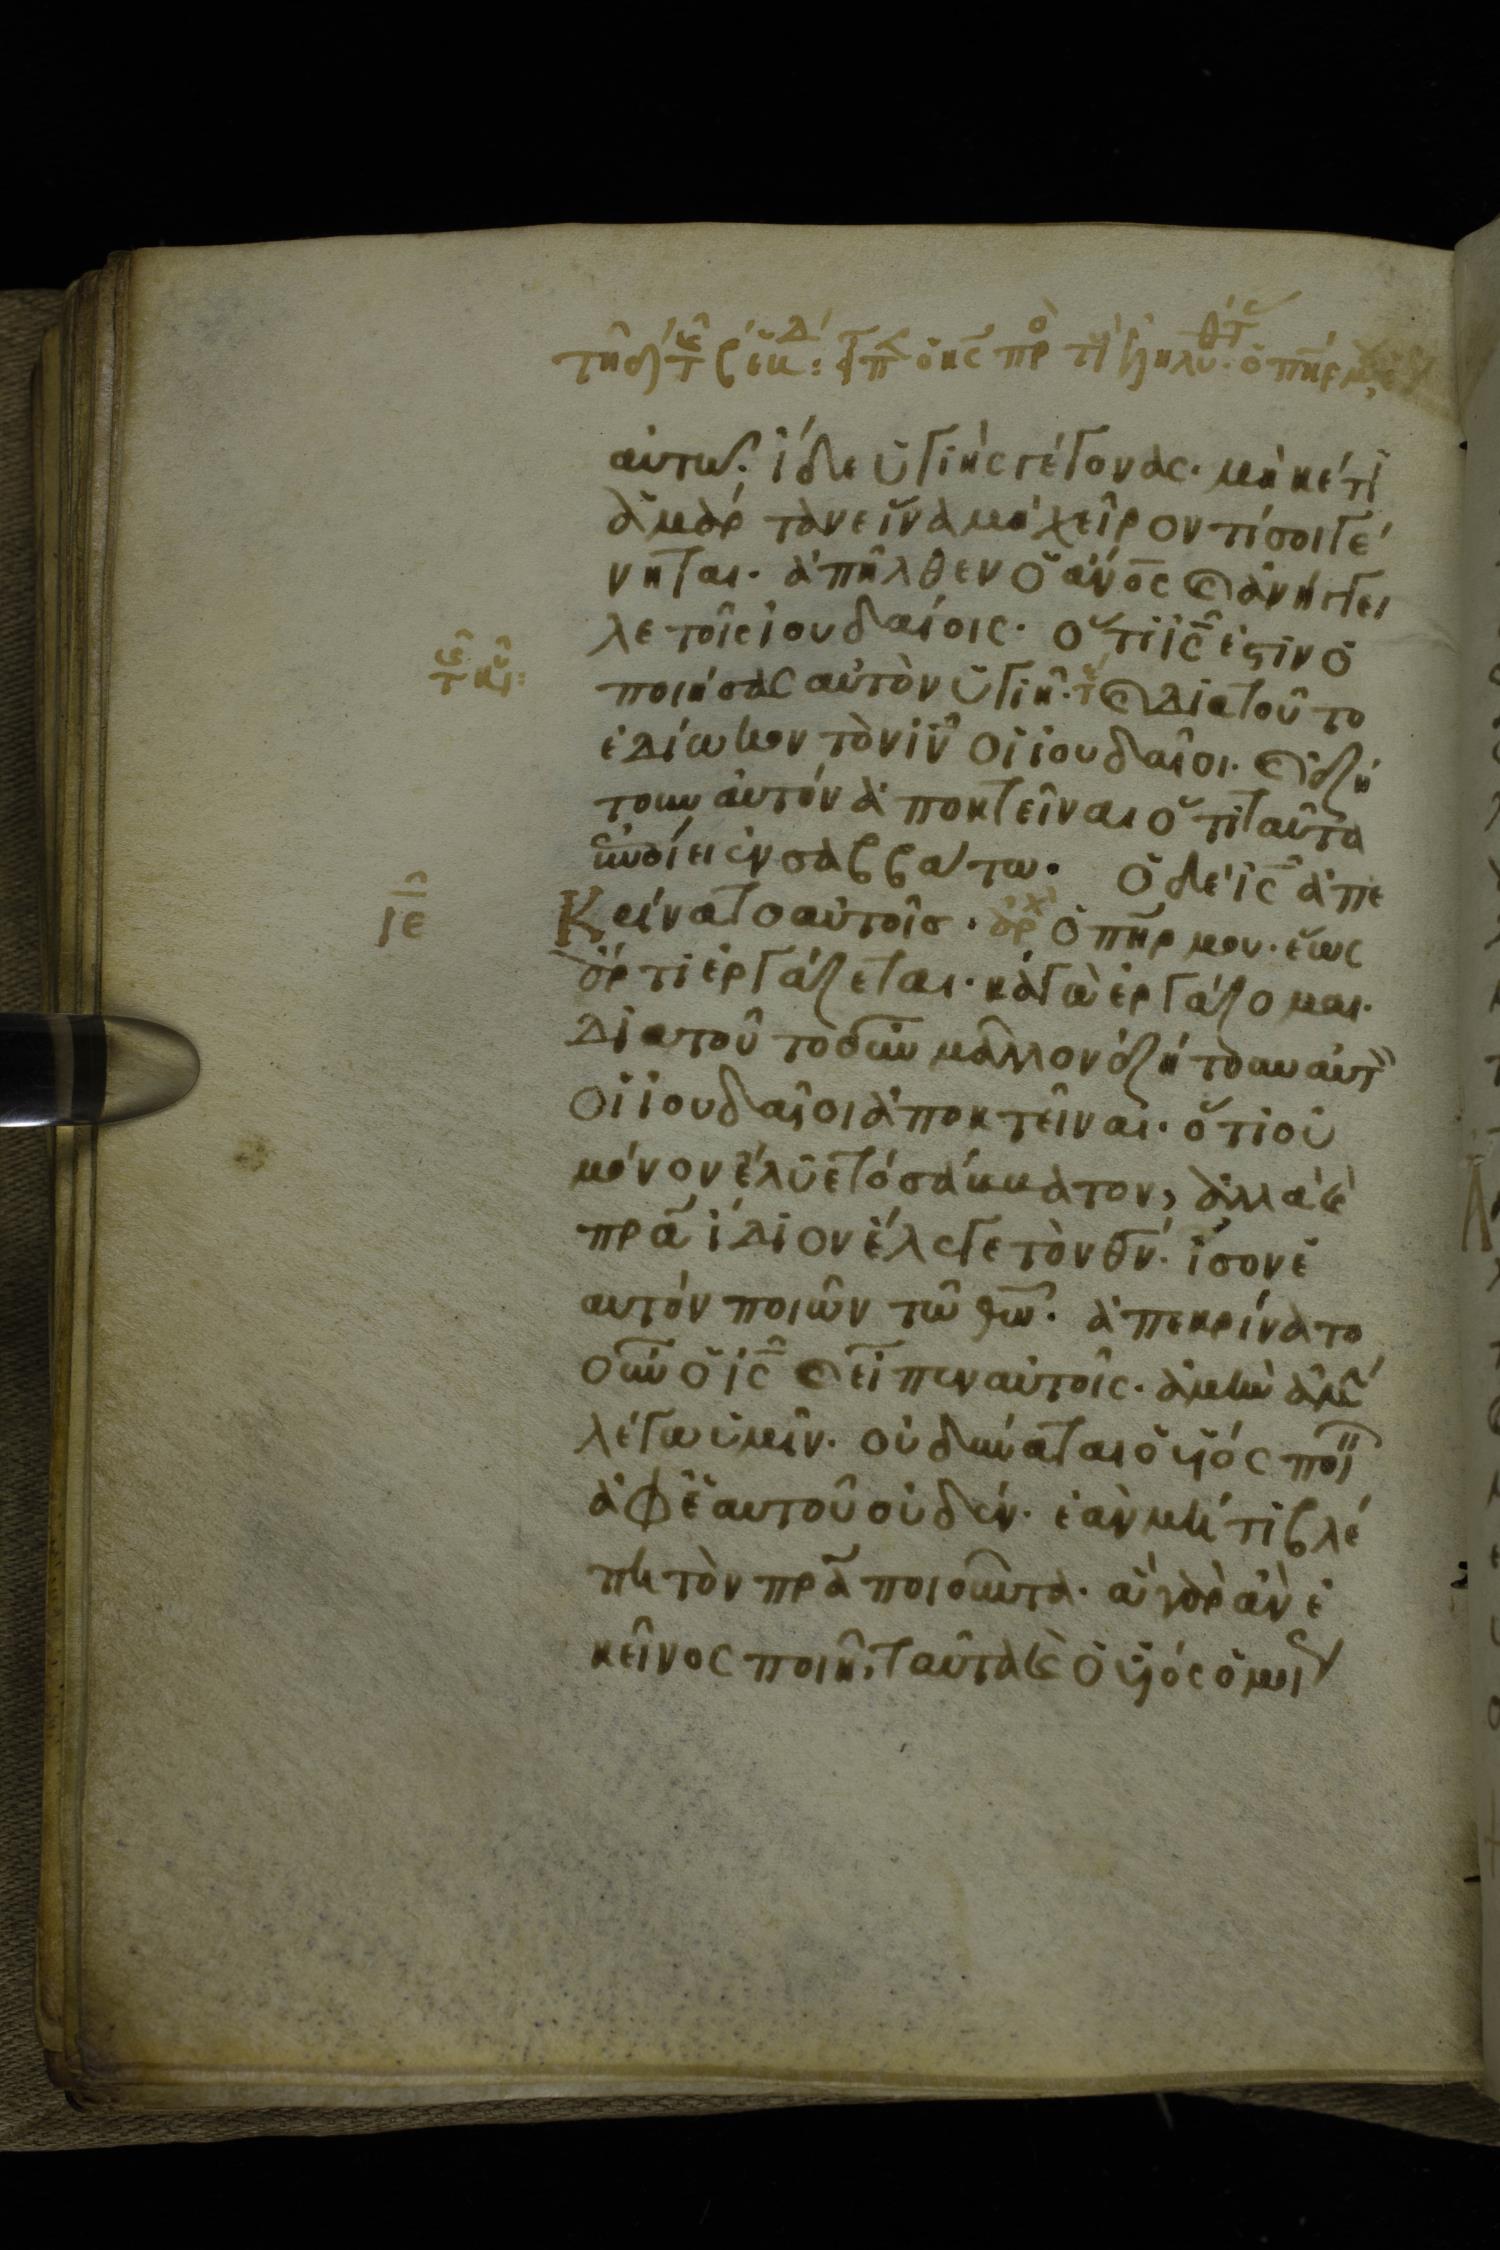 αὐτῶ· ἴδε ὑγιὴς γέγονας· μηκέτι
ἁμάρτανε ἵνα μὴ χεῖρον τί σοι γέ
νηται· ἀπῆλθεν ὁ ἄνος καὶ ἀνήγγει
λε τοῖς ἰουδαίοις· ὅτι ις ἐστιν ὁ
ποιήσας αὐτὸν ὑγιῆ· καὶ διατοῦτο
ἐδίωκον τὸν ιν οἱ ἰουδαῖοι· καὶ ἐζή
τουν αὐτὸν ἀποκτεῖναι ὅτι ταῦτα
ἐποίει ἐν σαββάτω· ὁ δὲ ις ἀπε
ιε Κρίνατο αὐτοῖς· ὁ πηρ μου· ἕως
ἄρτι ἐργάζεται· κἀγὼ ἐργάζομαι·
Διατοῦτο οὖν μᾶλλον ἐζήτουν αὐτ
οἱ ἰουδαῖοι ἀποκτεῖναι· ὅτι οὐ
μόνον ἔλυε τὸ σάββατον, ἀλλὰ καὶ
πρα ἴδιον ἔλεγε τὸν θν· ἴσον ἑ
αυτὸν ποιῶν τῶ θω· ἀπεκρίνατο
οὖν ὁ ις καὶ εἶπεν αὐτοῖς· ἀμὴν ἀμ
λέγω ὑμῖν· οὐ δύναται ὁ υἱός ποι
ἀφ ἑαυτοῦ οὐδέν· ἐὰν μή τι βλέ
πη τὸν πρα ποιοῦντα· ἃ γὰρ ἂν ἐ
κεῖνος ποιῆ, ταῦτα καὶ ὁ υἱός ὁμοι